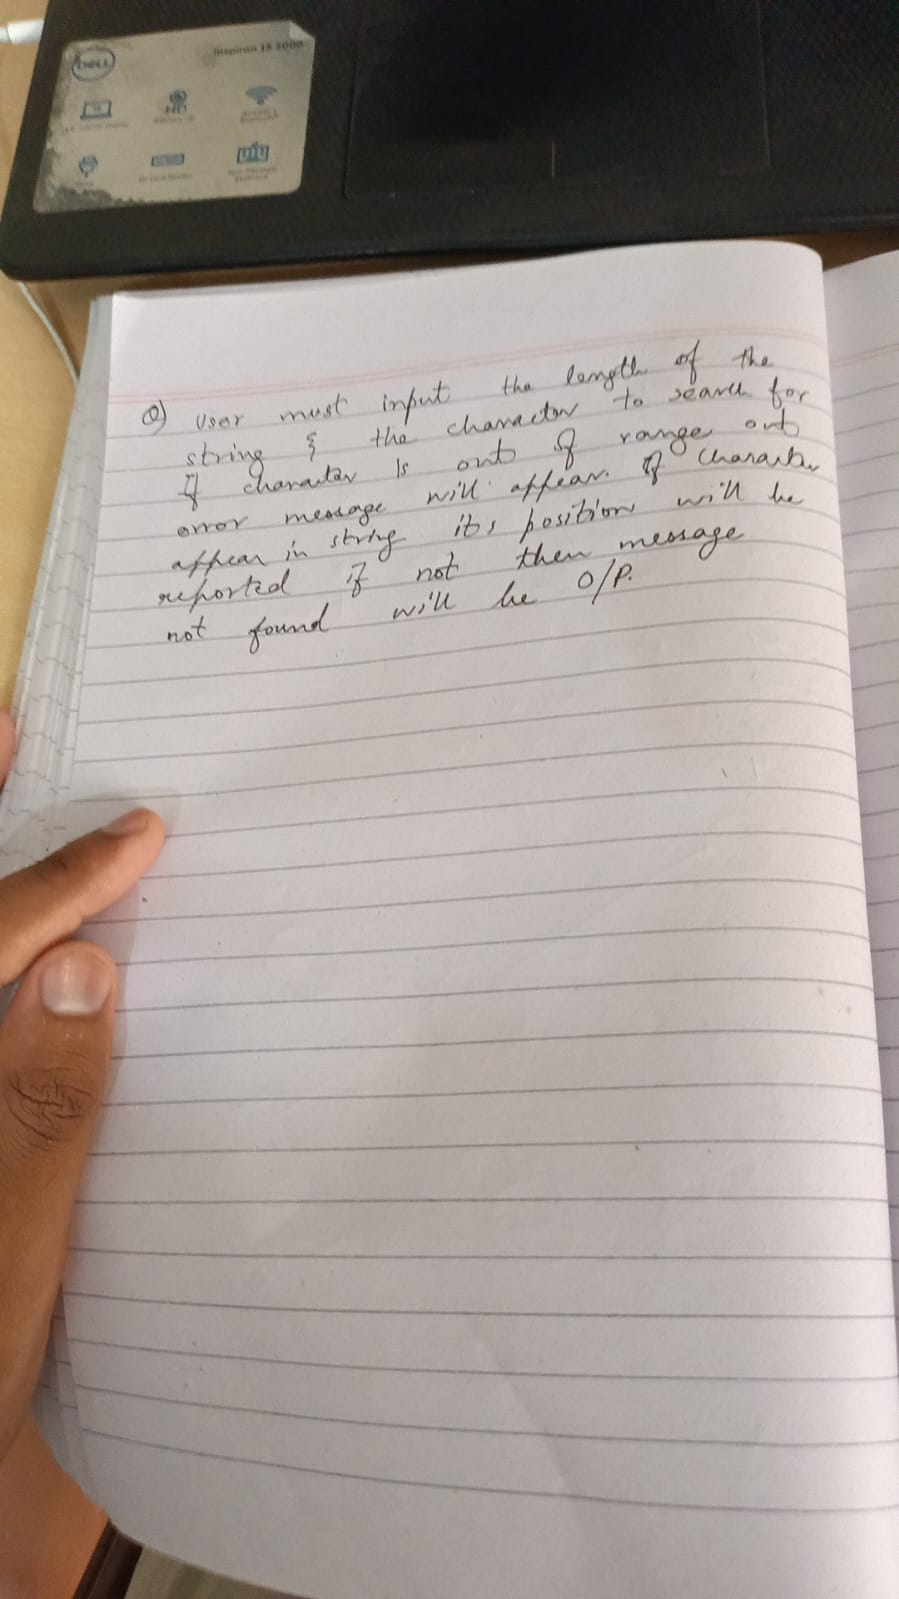 DELL
Inspiron 15 5000
HD
Q) User must input the length of the
string & the character to search for
If character is out of range ont
error message will appear. If character
appear in string its position will be
reported if not then message
not found will be O/P.